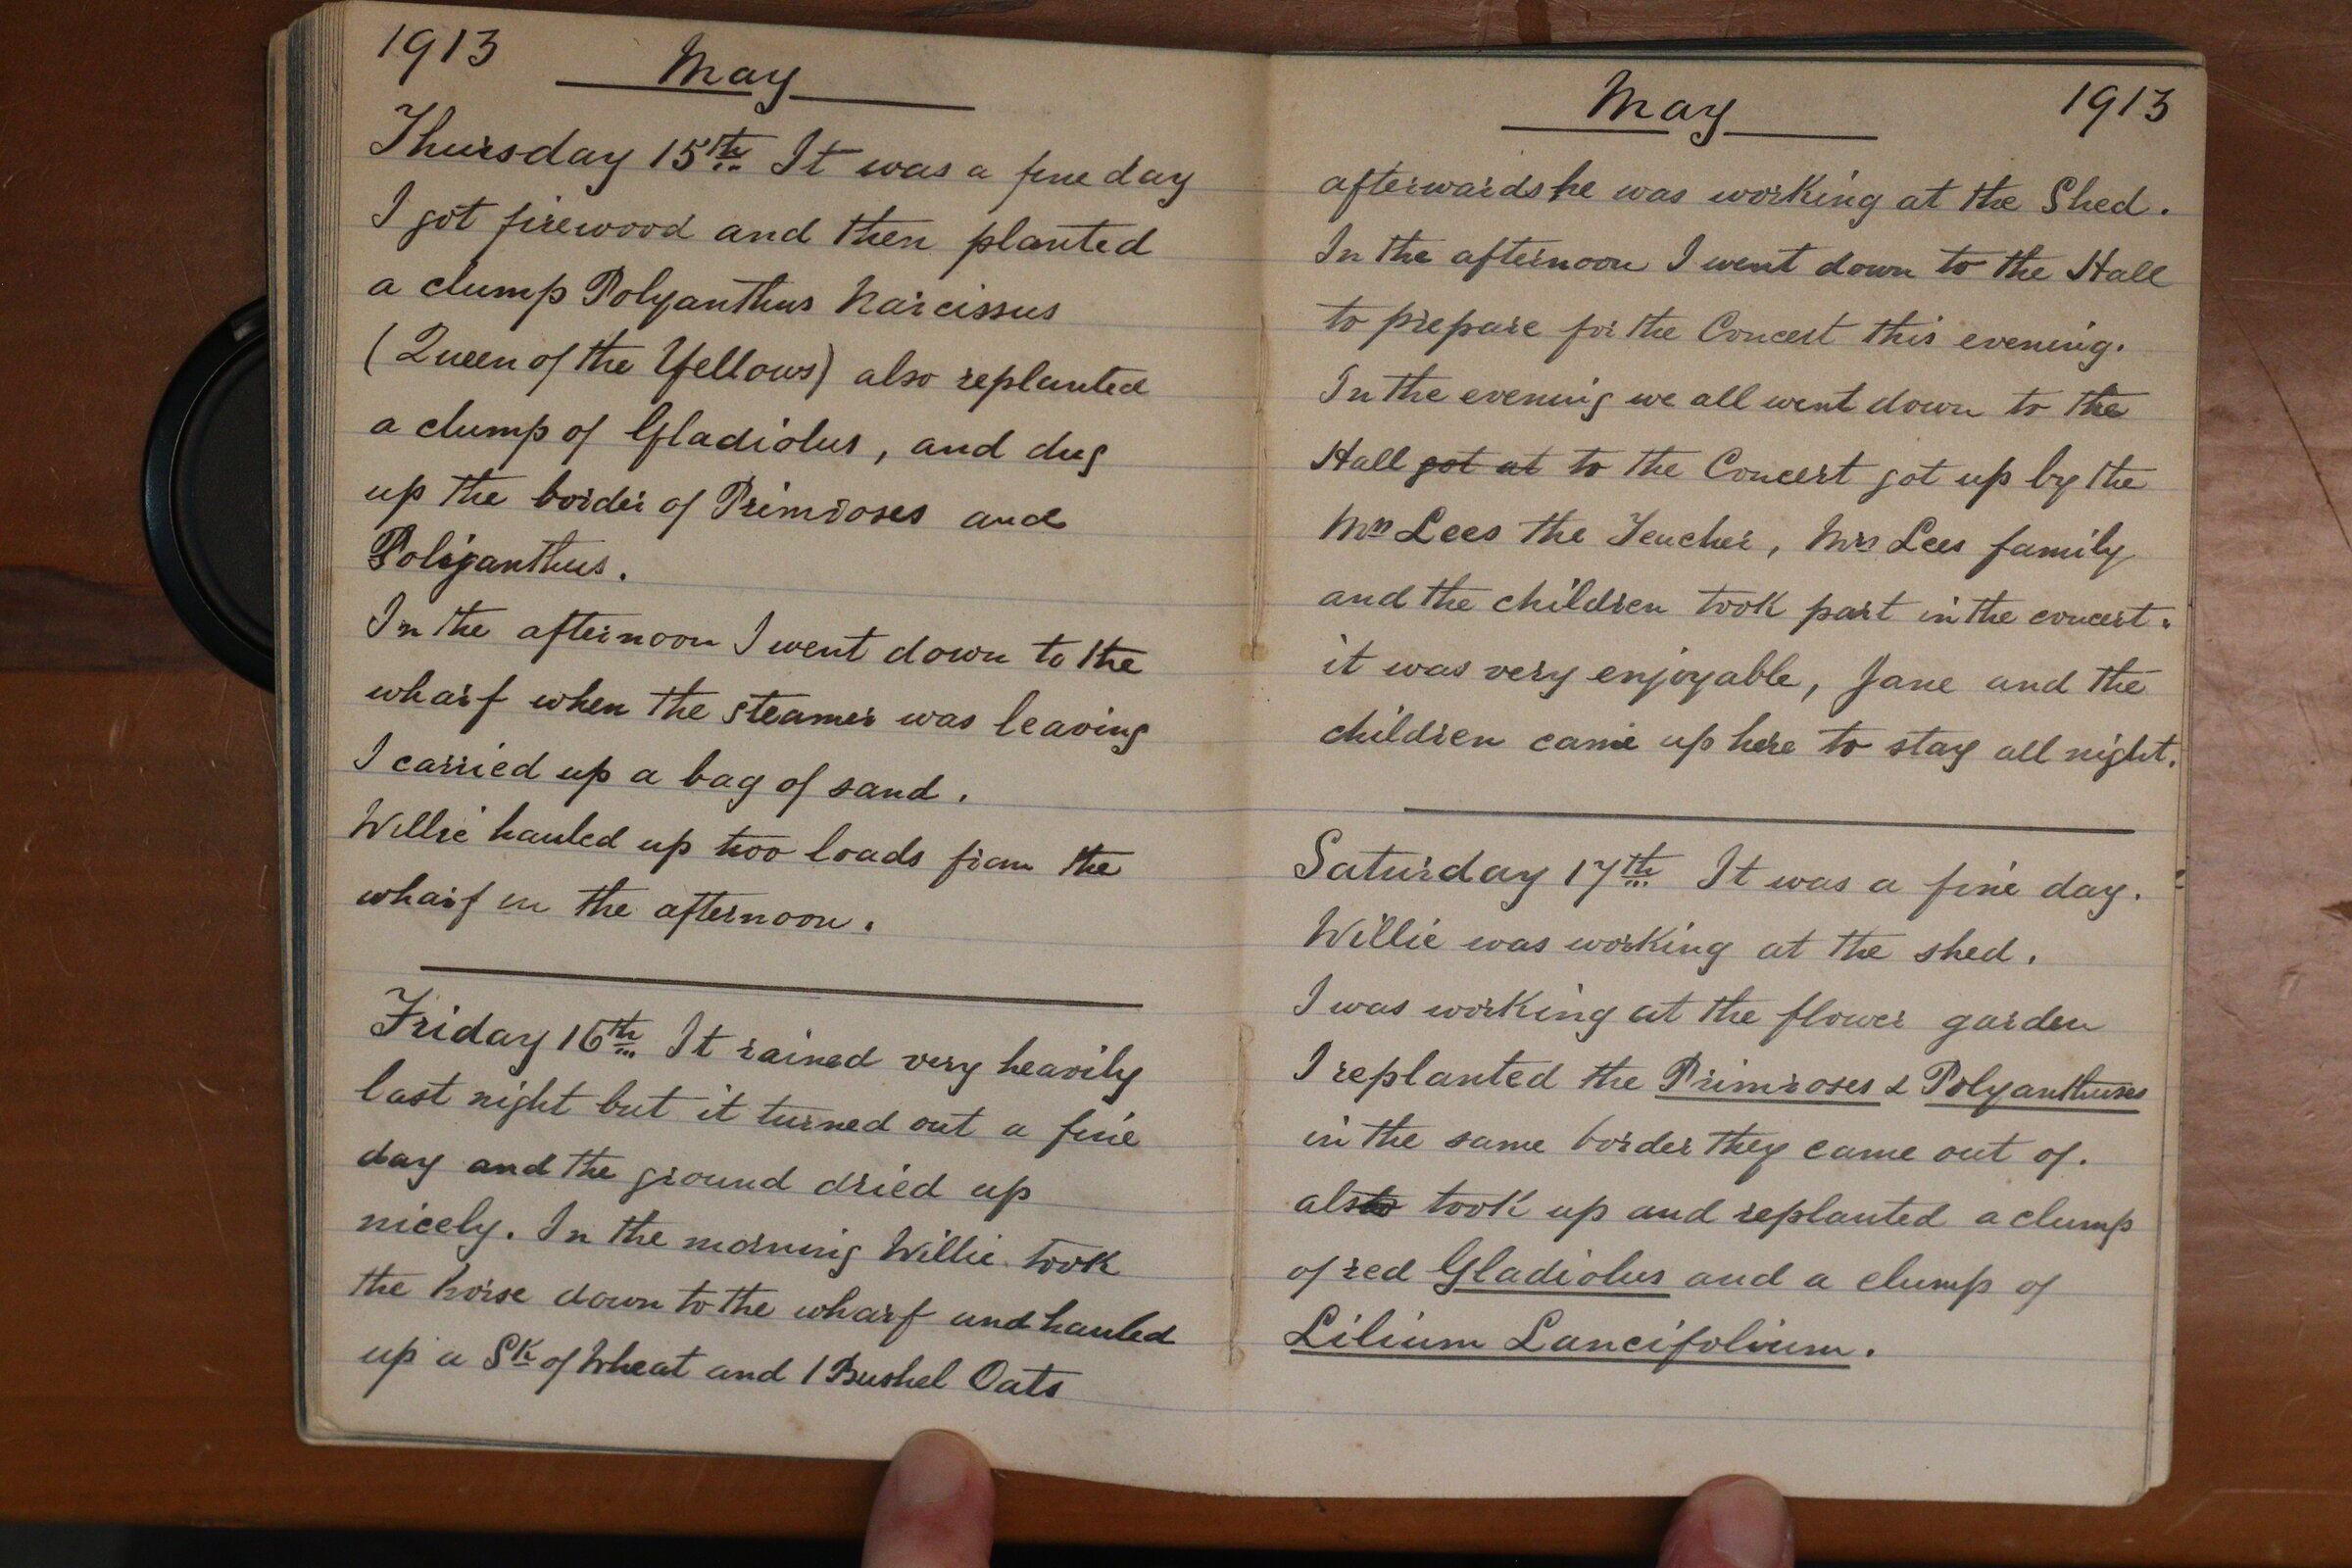 1913
May
Thursday 15th It was a fine day
I got firewood and then planted
a clump Polyanthus Narcissus
(Queen of the Yellows) also replanted
a clump of Gladiolus, and dug
up the border of Primroses and
Poliganthus.
In the afternoon I went down to the
wharf when the steamer was leaving
I carried up a bag of sand.
Willie hauled up two loads from the
wharf in the afternoon.
Friday 16th It rained very heavily
last night but it turned out a fine
day and the ground dried up
nicely. In the morning Willie took
the horse down to the wharf and hauled
up a Sk of Wheat and 1 Bushel Oats
May
1913
afterwards he was working at the Shed.
In the afternoon I went down to the Hall
to prepare for the Concert this evening.
In the evening we all went down to the
Hall got at to the Concert got up by the
Mrs Lees the Teacher, Mrs Lees family
and the children took part in the concert.
it was very enjoyable, Jane and the
children came up here to stay all night.
Saturday 17th It was a fine day.
Willie was working at the shed.
I was working at the flower garden
I replanted the Primroses & Polyanthuses
in the same border they came out of.
also took up and replanted a clump
of red Gladiolus and a clump of
Lilium Lancifolium.